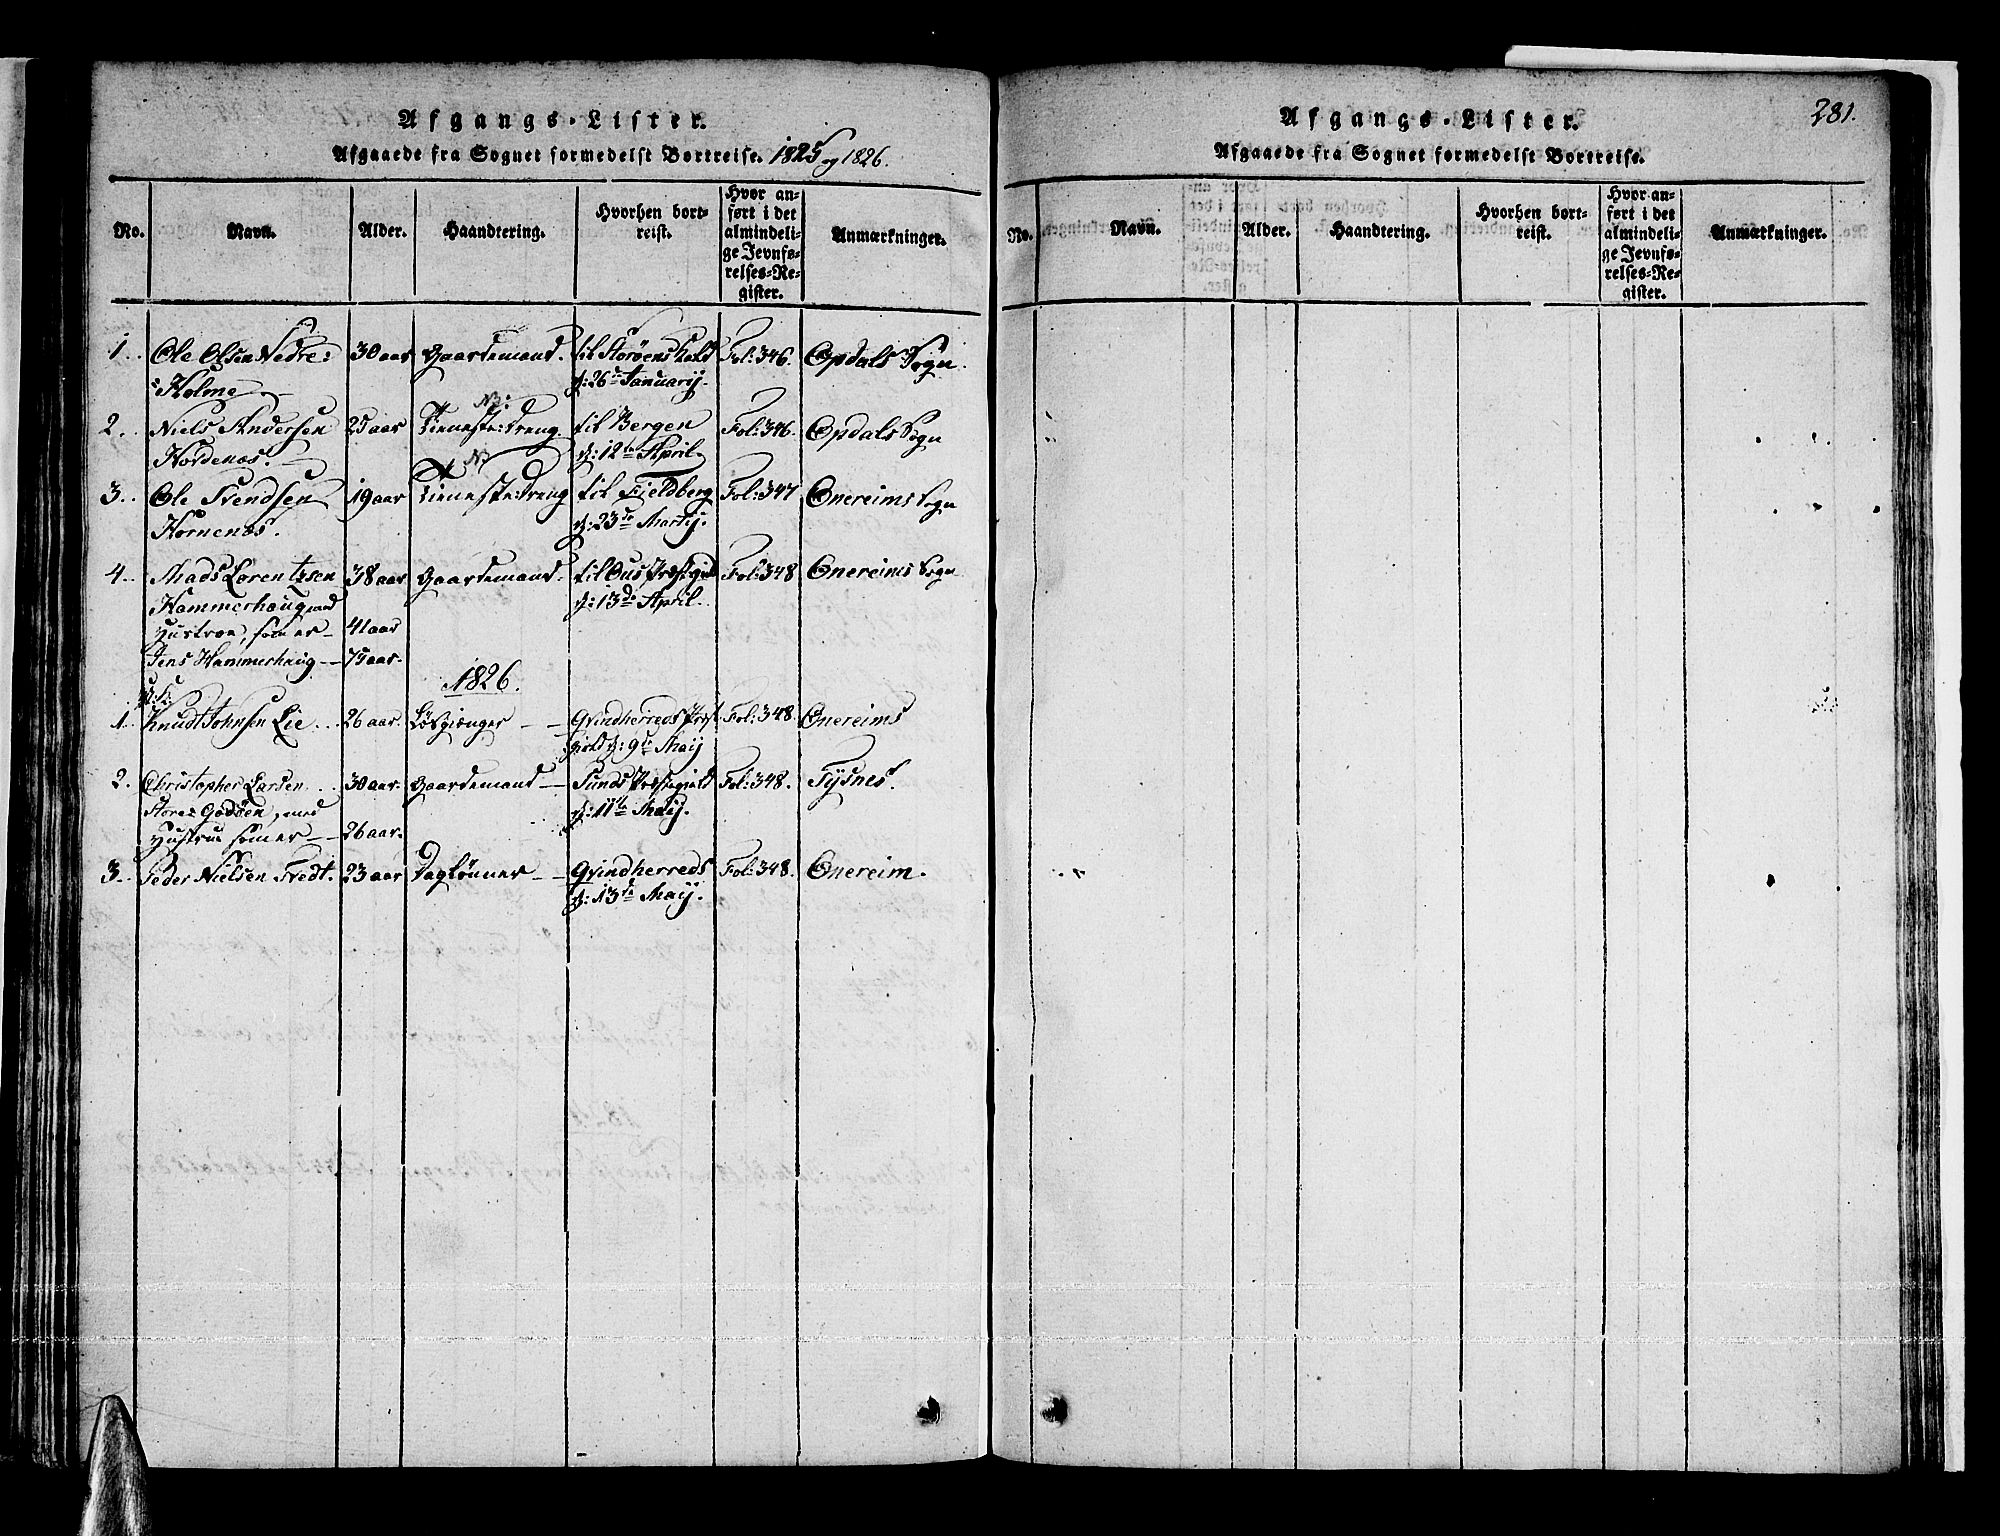 Afgangs-Lister.
Afgaaede fra Sognet formedelst Bortreise. 1825 og 1826.
No. Navn. Alder. Haandtering. Hvorhen bortreist. Hvor anført i det almindelige Jevnførelses-Register. Anmærkninger.
1. Ole Olsen Nedre= 30 aar Gaardemand. til Storøens Fol: 346. Opdals Sogn.
=Holme d: 26de Januarij.
NB:
2. Niels Andersen 25 aar Tieneste:dreng til Bergen Fol: 346. Opdals Sogn
Hordenæs. d: 12te April.
NB
3. Ole Svendsen 19 aar Tieneste:dreng til Fjeldberg Fol: 347 Onereims Sogn
Hornenæs. d: 23de Martij.
4. Mads Lorentzsen 38 aar Gaardemand. til Ous Præstegield Fol: 348 Onereims Sogn
Hammerhaug med d: 13de April.
Hustroe, som er 41 aar
Jens Hammerhaug 75 aar.
1826.
1. Knudt Johnsen Lie 26 aar. Løsgiænger Qvindherreds Præst Fol: 348. Onereims
gield d: 9de Maij
2. Christopher Larsen 30 aar. Gaardemand Sunds Præstegield Fol: 348. Tysnes.
Store= Godøen, med d: 11te Maij.
Hustrue som er 26 aar.
3. Peder Nielsen Tvedt. 23 aar Daglønner Qvindherreds Fol: 348. Onereim.
d: 13de Maij.
281.
Afgangs-Lister.
Afgaaede fra Sognet formedelst Bortreise.
No. Navn. Alder. Haandtering. Hvorhen bortreist. Hvor anført i det almindelige Jevnførelses-Register. Anmærkninger.